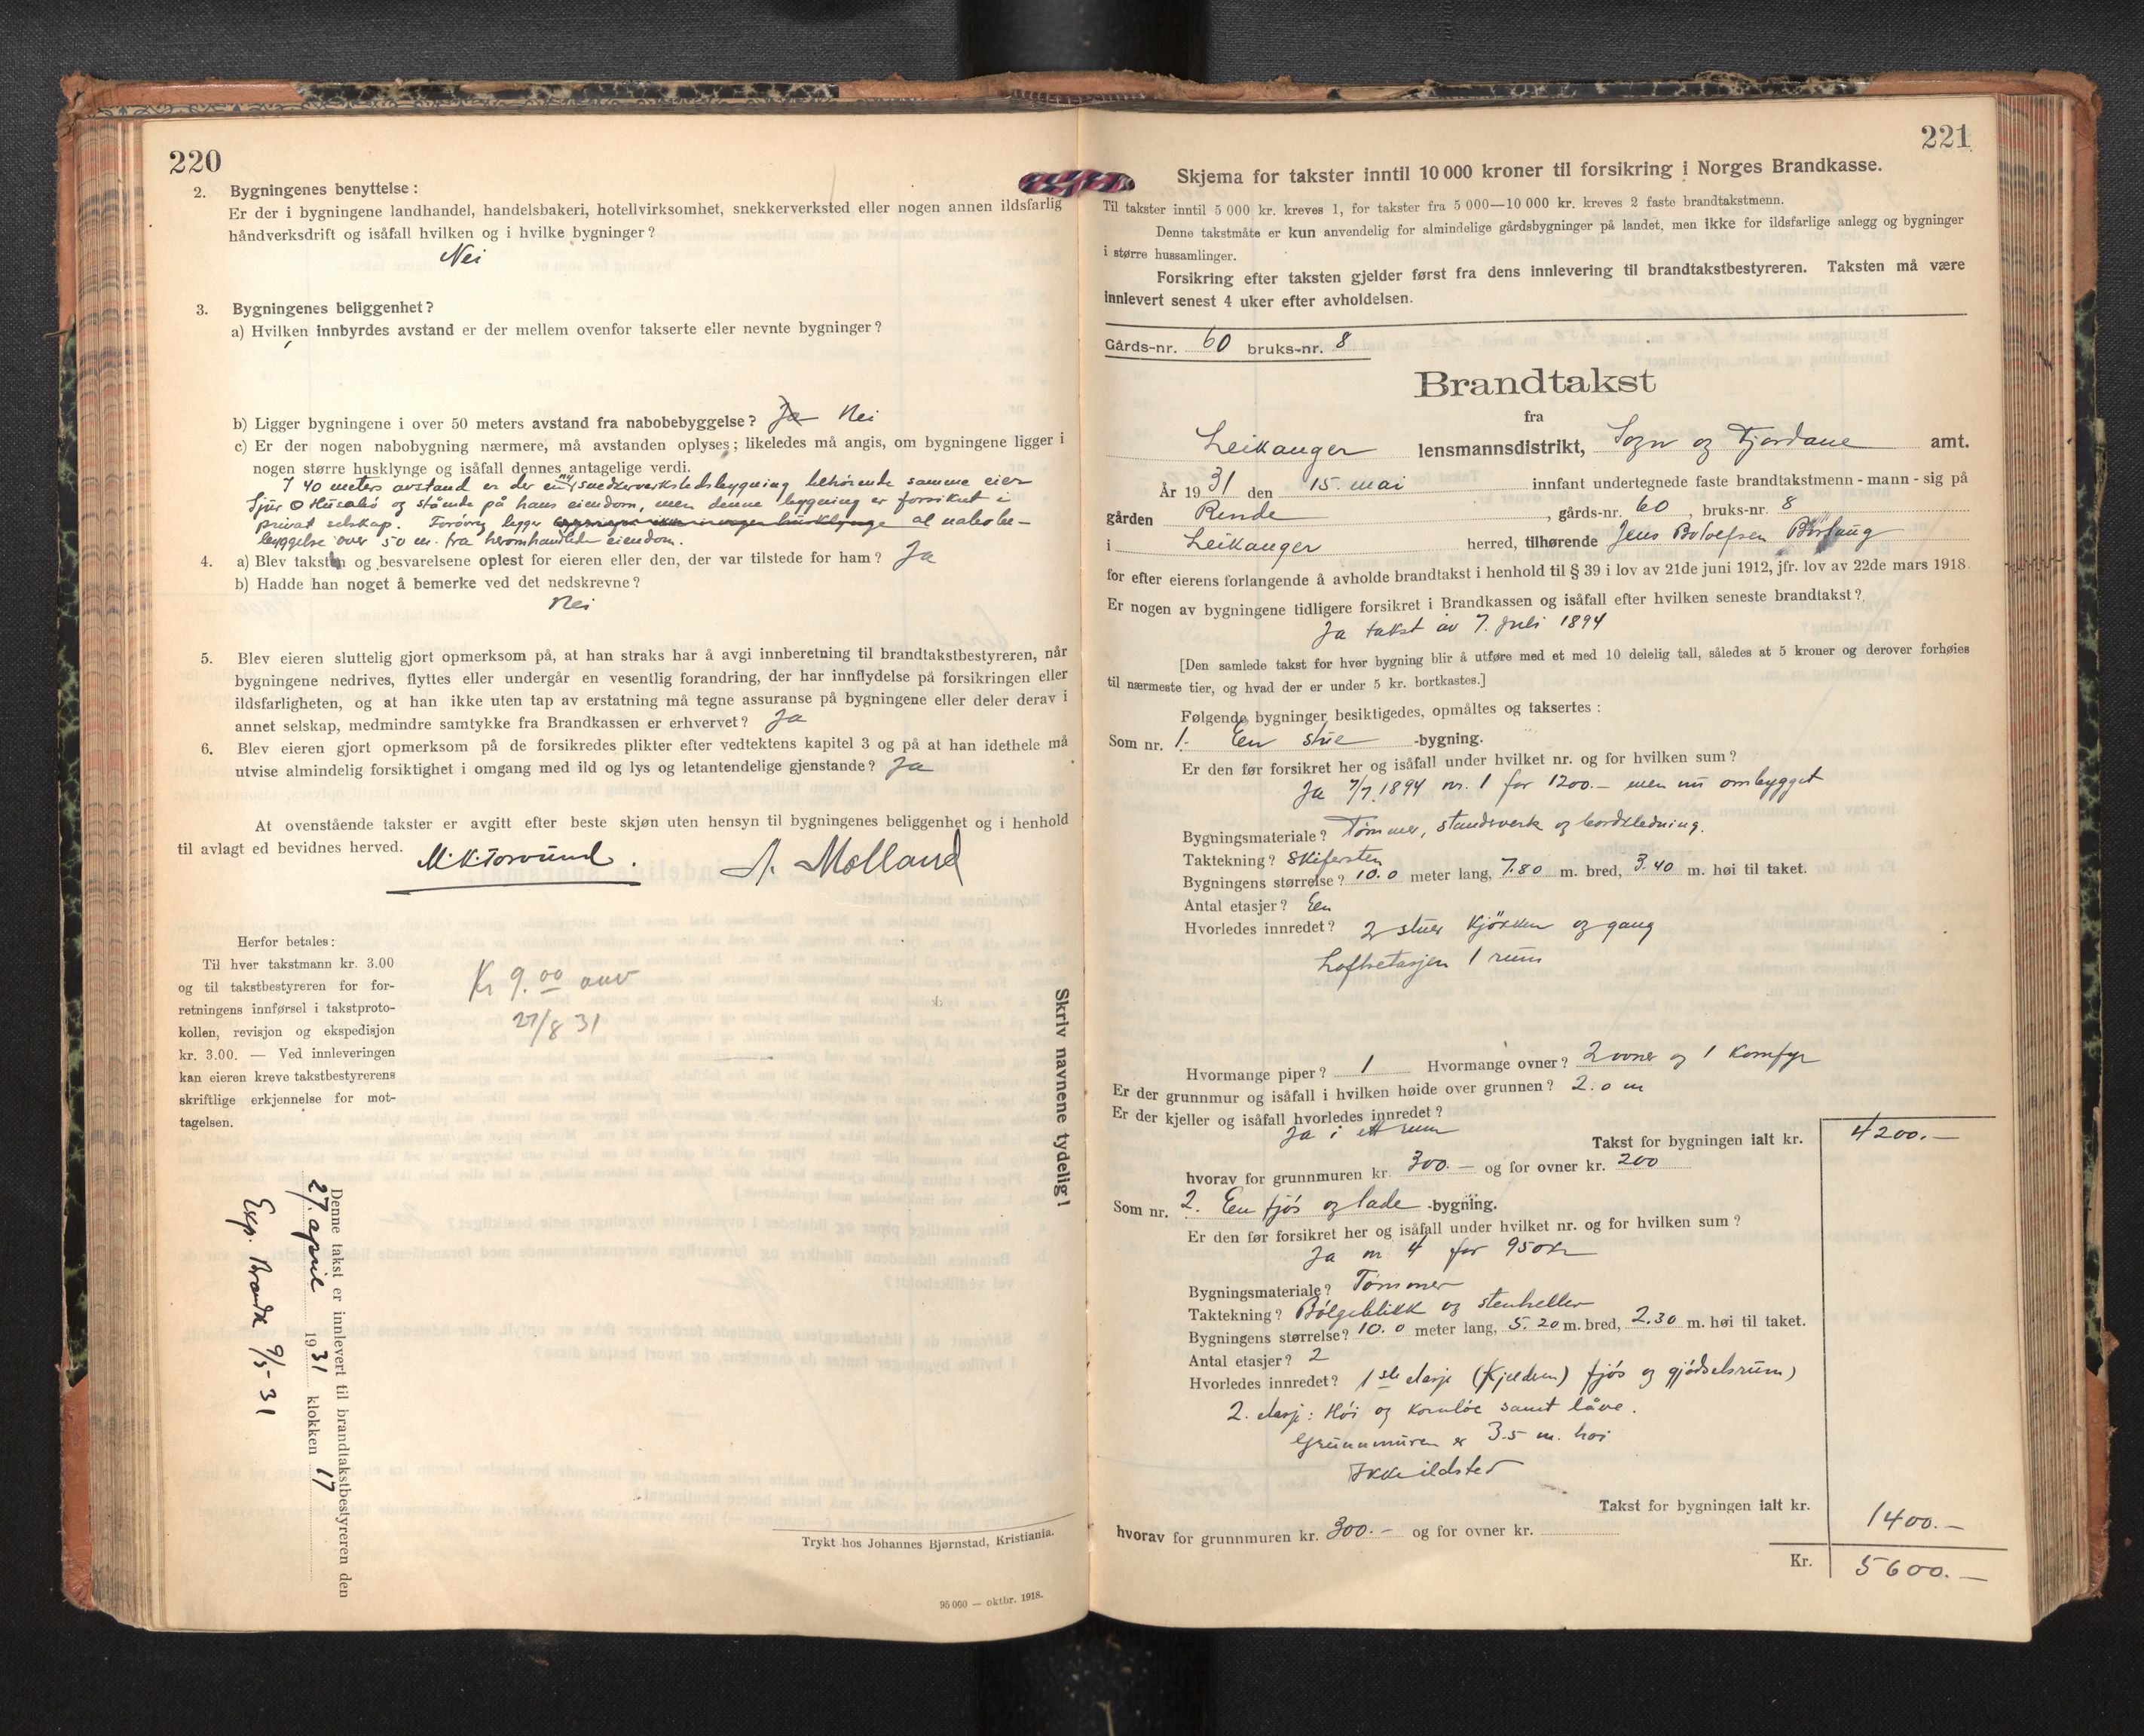 220
2. Bygningenes benyttelse:
Er der i bygningene landhandel, handelsbakeri, hotellvirksomhet, snekkerverksted eller nogen annen ildsfarlig
håndverksdrift og isåfall hvilken og i hvilke bygninger?
Nei
3. Bygningenes beliggenhet?
a) Hvilken innbyrdes avstand er der mellem ovenfor takserte eller nevnte bygninger?
b) Ligger bygningene i over 50 meters avstand fra nabobebyggelse? Ja Nei
c) Er der nogen nabobygning nærmere, må avstanden oplyses; likeledes må angis, om bygningene ligger i
nogen større husklynge og isåfall dennes antagelige verdi.
I 40 meters avstand er der en ny snedkerverkstedsbygning tilhörende samme eier
Sjur O Husabö og stående på hans eiendom, men denne bygning er forsikret i
privat selskap. Forövrig ligger al nabobe-
byggelse over 50 m. fra heromhandlede eiendom.
4. a) Blev taksten og besvarelsene oplest for eieren eller den, der var tilstede for ham? Ja
b) Hadde han noget å bemerke ved det nedskrevne?
Nei
5. Blev eieren sluttelig gjort opmerksom på, at han straks har å avgi innberetning til brandtakstbestyreren, når
bygningene nedrives, flyttes eller undergår en vesentlig forandring, der har innflydelse på forsikringen eller
ildsfarligheten, og at han ikke uten tap av erstatning må tegne assuranse på bygningene eller deler derav i
annet selskap, medmindre samtykke fra Brandkassen er erhvervet? Ja
6. Blev eieren gjort opmerksom på de forsikredes plikter efter vedtektens kapitel 3 og på at han idethele må
utvise almindelig forsiktighet i omgang med ild og lys og letantendelige gjenstande? Ja
At ovenstående takster er avgitt efter beste skjøn uten hensyn til bygningenes beliggenhet og i henhold
til avlagt ed bevidnes herved.
A. Molland
Herfor betales:
Til hver takstmann kr. 3.00
og til takstbestyreren for for-
retningens innførsel i takstproto-
kollen, revisjon og ekspedisjon
kr. 3.00. — Ved innleveringen
kan eieren kreve takstbestyrerens
skriftlige erkjennelse for mot-
tagelsen.
Kr 9.00 anv
27/8 31
Skriv navnene tydelig!
Denne takst er innlevert til brandtakstbestyreren den
27. april 1931 klokken 17
Exp. Brandk 9/5-31
Trykt hos Johannes Bjørnstad, Kristiania.
95 000 — oktbr. 1918.
221
Skjema for takster inntil 10 000 kroner til forsikring i Norges Brandkasse.
Til takster inntil 5 000 kr. kreves 1, for takster fra 5 000—10 000 kr. kreves 2 faste brandtakstmenn.
Denne takstmåte er kun anvendelig for almindelige gårdsbygninger på landet, men ikke for ildsfarlige anlegg og bygninger
i større hussamlinger.
Forsikring efter taksten gjelder først fra dens innlevering til brandtakstbestyreren. Taksten må være
innlevert senest 4 uker efter avholdelsen.
Gårds-nr. 60 bruks-nr. 8
Brandtakst
fra
Leikanger lensmannsdistrikt, Sogn og Fjordane amt.
År 1931 den 15. mai innfant undertegnede faste brandtakstmenn - mann - sig på
gården Rinde, gårds-nr. 60, bruks-nr. 8
i Leikanger herred, tilhørende Jens
for efter eierens forlangende å avholde brandtakst i henhold til § 39 i lov av 21de juni 1912, jfr. lov av 22de mars 1918.
Er nogen av bygningene tidligere forsikret i Brandkassen og isåfall efter hvilken seneste brandtakst?
Ja takst av 7. juli 1894
[Den samlede takst for hver bygning blir å utføre med et med 10 delelig tall, således at 5 kroner og derover forhøies
til nærmeste tier, og hvad der er under 5 kr. bortkastes.]
Følgende bygninger besiktigedes, opmåltes og taksertes:
Som nr. 1. En stue -bygning.
Er den før forsikret her og isåfall under hvilket nr. og for hvilken sum?
Ja 7/7 1894 nr. 1 for 1200.- men nu ombygget
Bygningsmateriale? Tømmer, standsverk og bordkledning.
Taktekning? Skifersten
Bygningens størrelse? 10.0 meter lang, 7.80 m. bred, 3.40 m. høi til taket.
Antal etasjer? Een
Hvorledes innredet? 2 stuer kjökken og gang
Loftsetasjen 1 rum
Hvormange piper? 1 Hvormange ovner? 2 ovner og 1 komfyr
Er der grunnmur og isåfall i hvilken høide over grunnen? 2.0 m
Er der kjeller og isåfall hvorledes innredet?
Ja i ett rum
Takst for bygningen ialt kr. 4200.—
hvorav for grunnmuren kr. 300.— og for ovner kr. 200
Som nr. 2. En fjös og lade -bygning.
Er den før forsikret her og isåfall under hvilket nr. og for hvilken sum?
Ja nr. 4 for 950kr
Bygningsmateriale? Tömmer
Taktekning? Bölgeblikk og stenheller
Bygningens størrelse? 10.0 meter lang, 5.20 m. bred, 2.30 m. høi til taket.
Antal etasjer? 2
Hvorledes innredet? 1ste etasje (kjelderen) fjös og gjödselsrum)
2. etasje: Höi og kornlöe samt låve.
Grunnmuren er 3.5 m. höi
Ikke ildsted
Takst for bygningen ialt kr. 1400.—
hvorav for grunnmuren kr. 300.— og for ovner kr.
Kr. 5600.—